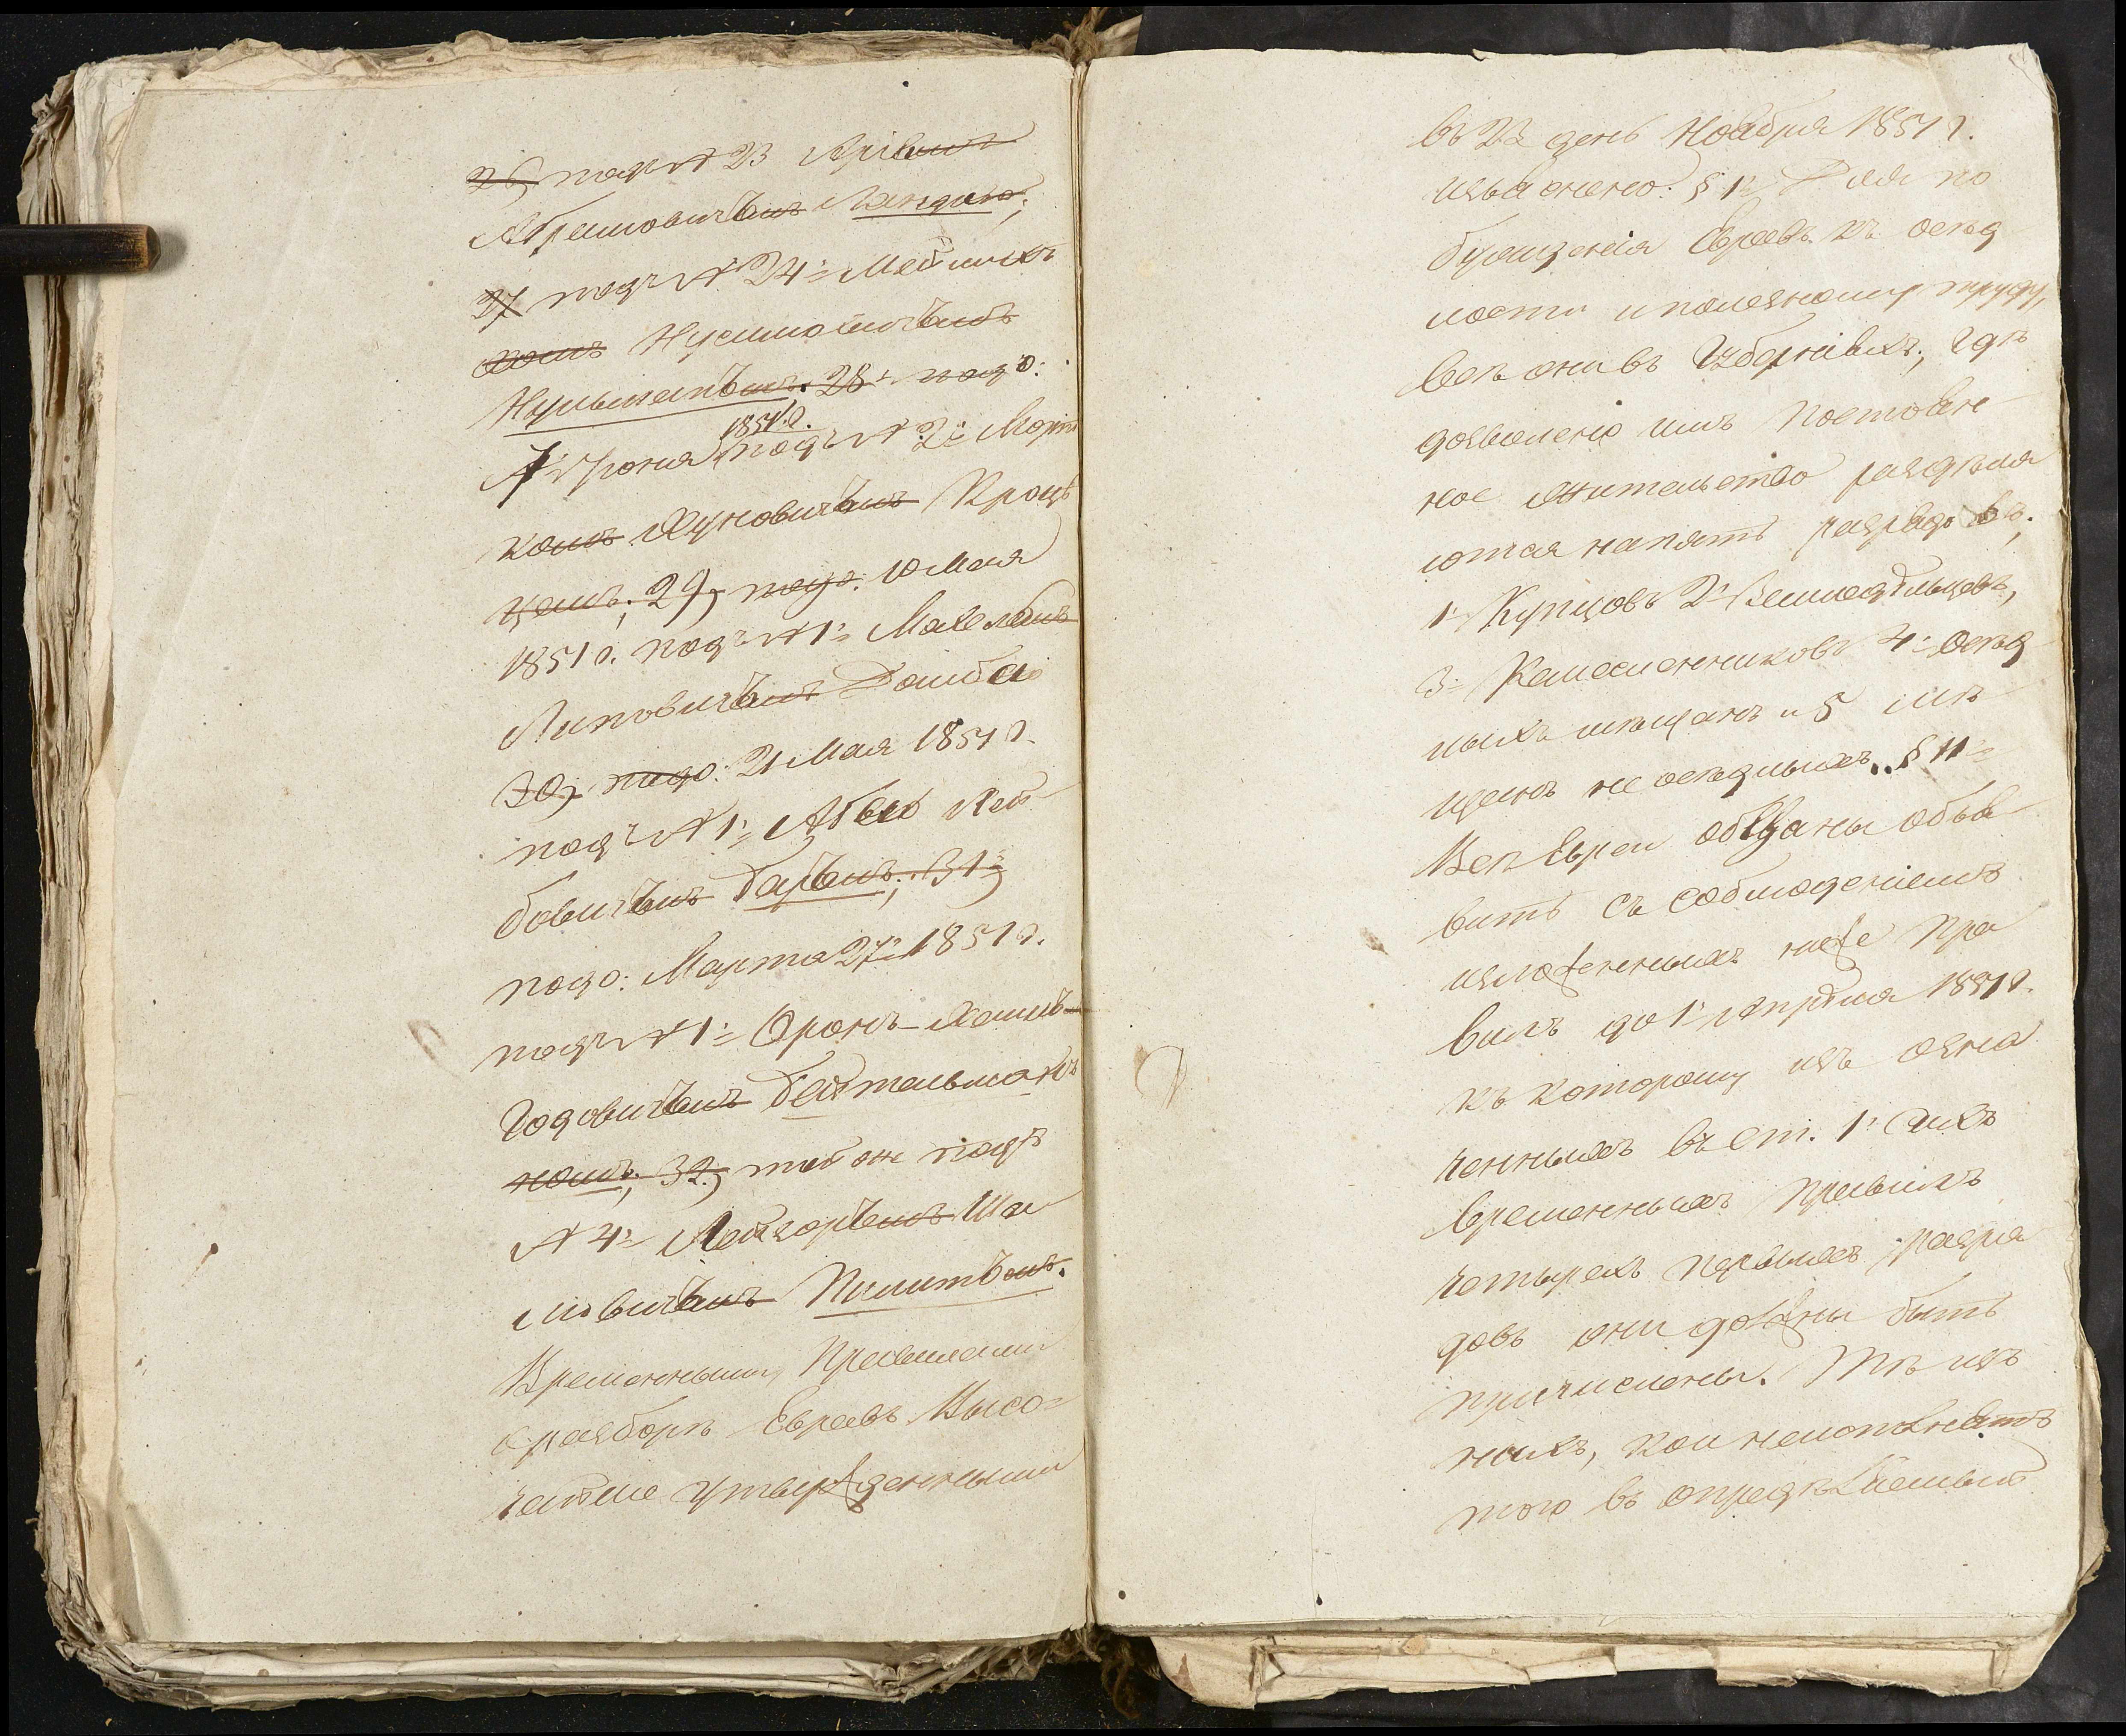 26, подъ № 23 Аріемъ
Абрамовичемъ Ландою;
27, подъ № 24= Мейлах
комъ Нусимовичемъ
Нульманомъ. 28= подъ:
1851. г.
7 Іюня подъ № 2= Морт
комъ Хуновичемъ Кроц
цемъ; 29, подъ: 10 Мая
1851 г. подъ № 1= Мавелемъ
Липовичемъ Домбою
30, подъ: 21 Мая 1851 г.
подъ № 1= Абою Лей
бовичемъ Баремъ; 31=
подъ: Марта 27= 1851 г.
подъ № 1= Орономъ-Хаимъ-
Годовичемъ Бейтельмано
номъ; 32, той же подъ
№ 4= Лейзоремъ Шае
мовичемъ Пилитомъ.
Временными, Правилами
о разборѣ Евреевъ Высо=
чайше утвержденными
въ 23 день Ноября 1851 г.
изъяснено: § 1= Для по
бужденія Евреевъ къ осѣд
лости и полезному труду,
всѣ они въ Губерніяхъ, гдѣ
дозволено имъ постоян
ное жительство раздѣля
ются на пять разрядовъ;
1= Купцовъ 2= Земледѣльцевъ,
3= Ремесленниковъ 4= Осѣд
лыхъ мѣщанъ и 5 мѣ
щанъ не осѣдлыхъ. § 11=
Всѣ Евреи обязаны объя
вить съ соблюденіемъ
изложенныхъ ниже пра
вилъ до 1= Апрѣля 1851 г.
къ которому изъ озна
ченныхъ въ ст. 1= сихъ
временныхъ правилъ
четырехъ первыхъ разря
довъ они должны быть
причислены. Тѣ изъ
нихъ, кои неисполнятъ
того въ опредѣленный